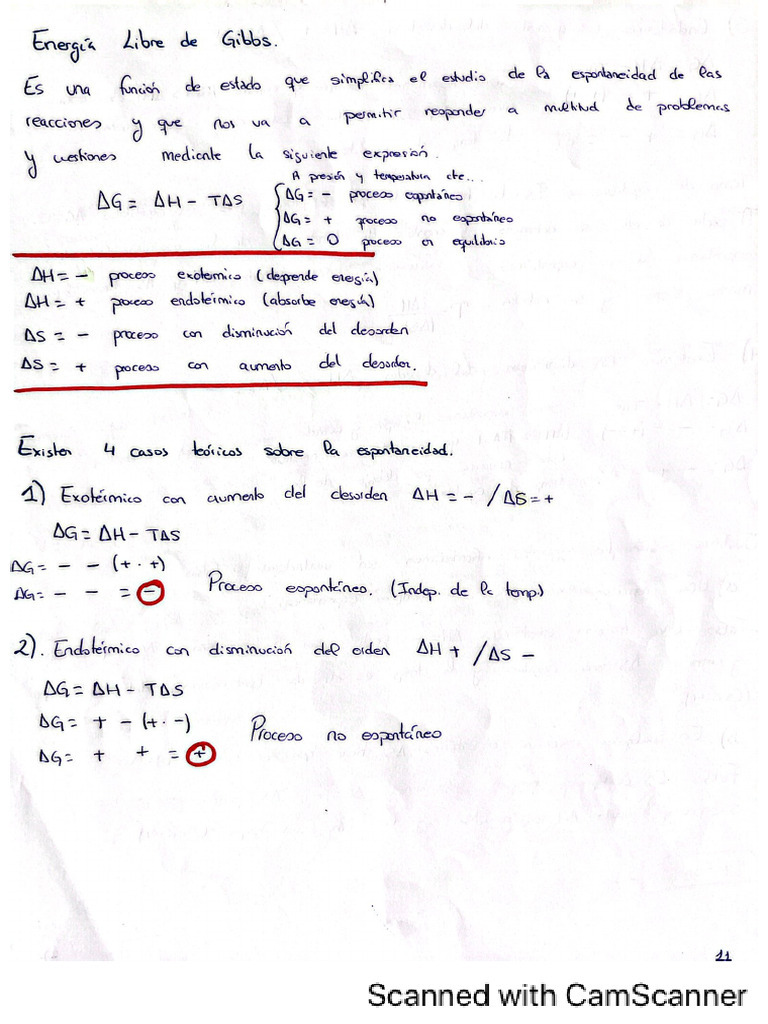 Energía Libre de Gibbs.
Es una función de estado que simplifica el estudio de la espontaneidad de las
reacciones y que nos va a permitir responder a multitud de problemas
y cuestiones mediante la siguiente expresión.
A presión y temperatura cte...
ΔG = ΔH - TΔS
ΔG = - proceso espontáneo
ΔG = + proceso no espontáneo
ΔG = 0 proceso en equilibrio
ΔH = - proceso exotermico (desprende energía)
ΔH = + proceso endotérmico (absorbe energía)
ΔS = - proceso con disminución del desorden
ΔS = + proceso con aumento del desorden.
Existen 4 casos teóricos sobre la espontaneidad.
1) Exotérmico con aumento del desorden ΔH = - / ΔS = +
ΔG = ΔH - TΔS
ΔG = - - (+ · +)
ΔG = - - = - Proceso espontáneo. (Indep. de la temp)
2). Endotérmico con disminución del orden ΔH + / ΔS -
ΔG = ΔH - TΔS
ΔG = + - (+ · -)
Proceso no espontáneo
ΔG = + + = +
11
Scanned with CamScanner